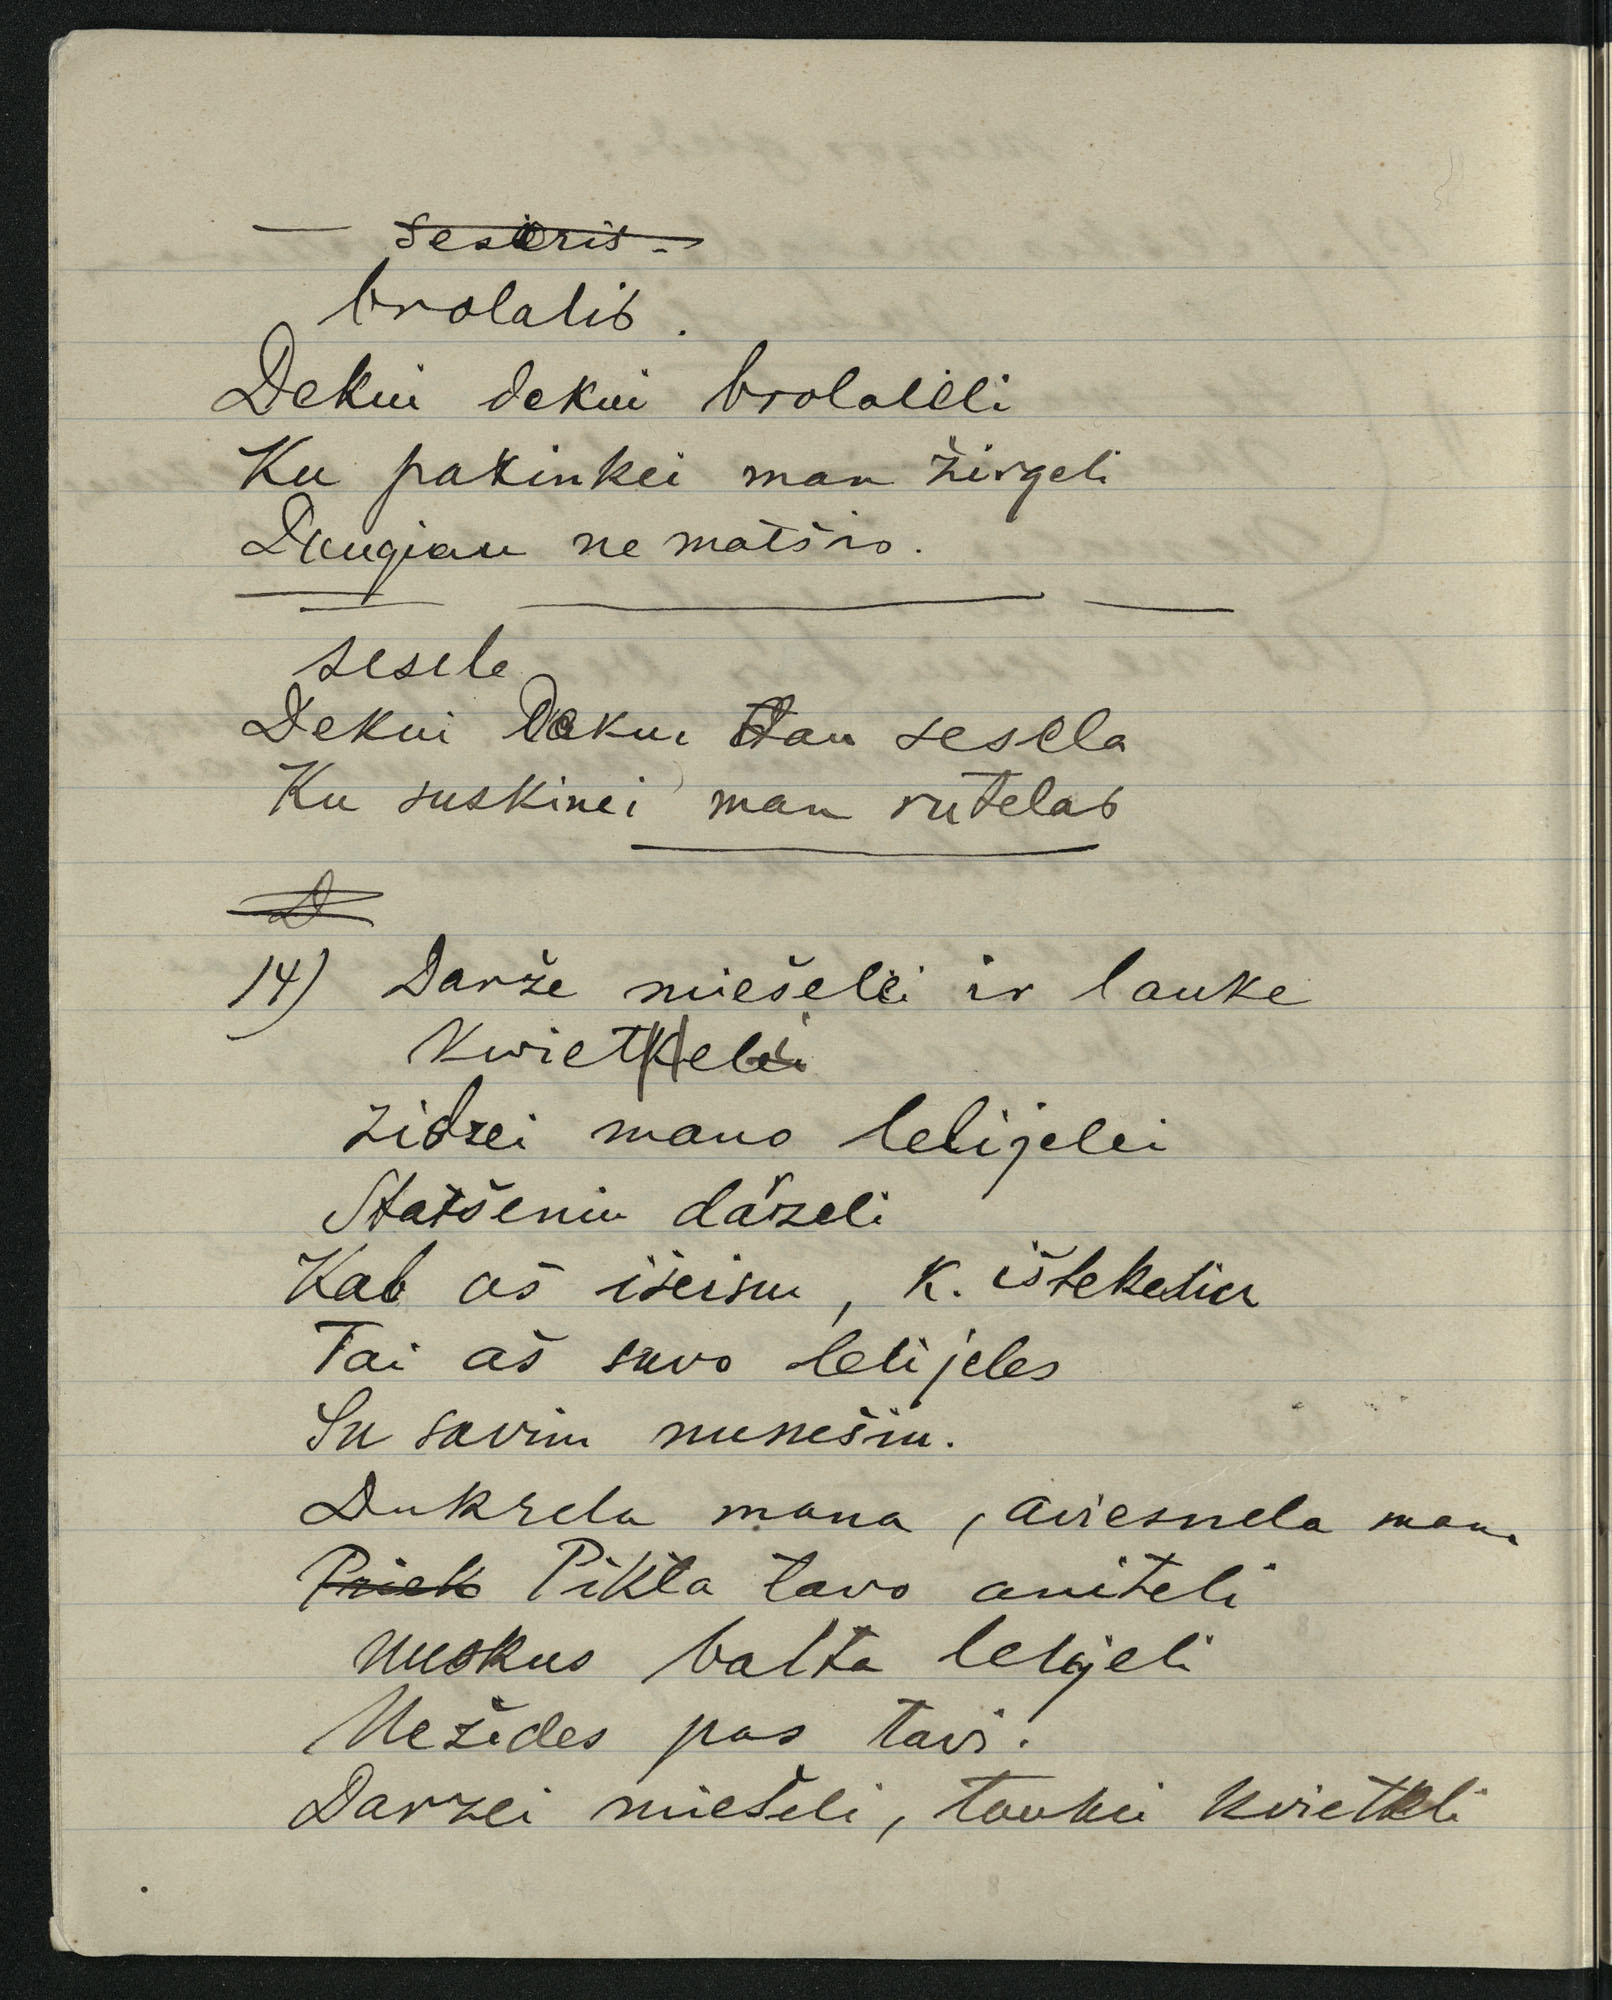 — ~~seseris~~ -
brolalis.
Dekui dekui brolaleli
Ku pakinkei man žirgeli
Daugiau ne matšio.
sesele
Dekui Dekui tau sesela
Ku suskinei man rutelas
~~D~~
14) Darže miešelei ir lauke
kwietkelei
zidzei mano lelijelei
Statšeniu darželi
Kab aš išeisu, k. ištekesiu
Tai aš savo lelijeles
Su savim nunešiu.
Dukrela mana, aviesnela mana
~~Priek~~ Pikta tavo aniteli
nuskus balta lelijeli
Nežides pas tavi.
Darzei miešeli, laukei kvietkeli